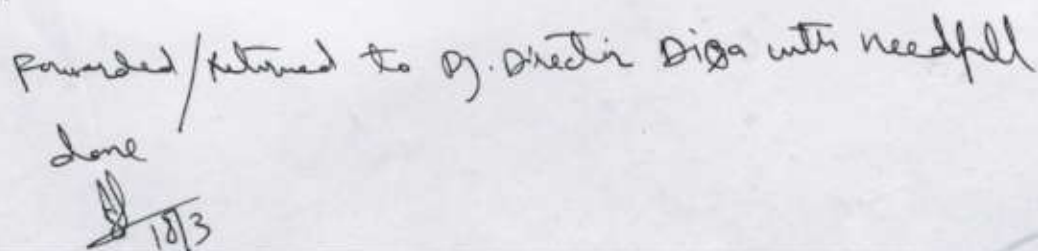 Forwarded/Returned to Dy. Director Diqa with needfull
done
18/3